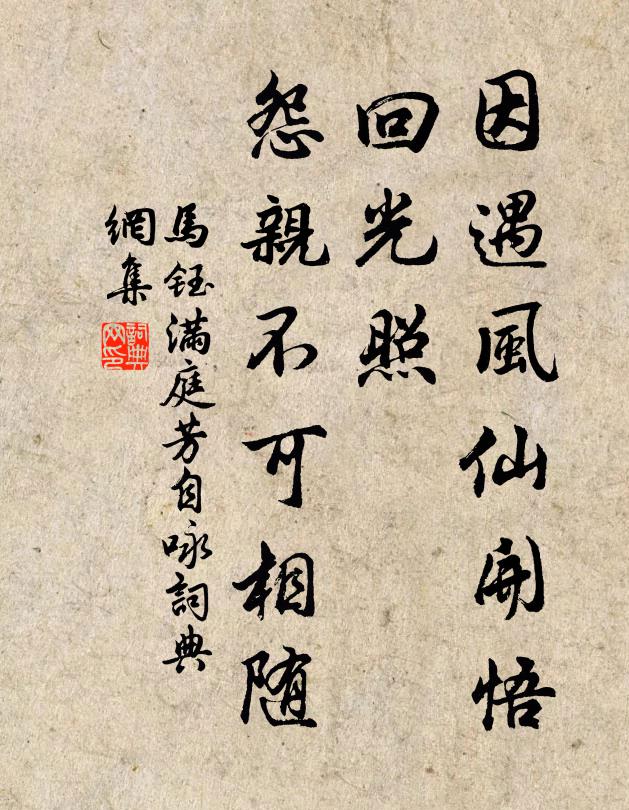 因遇風仙開悟
回光照
怨親不可相随
馬鈺滿庭芳自咏詞典
網集
詞典
网印